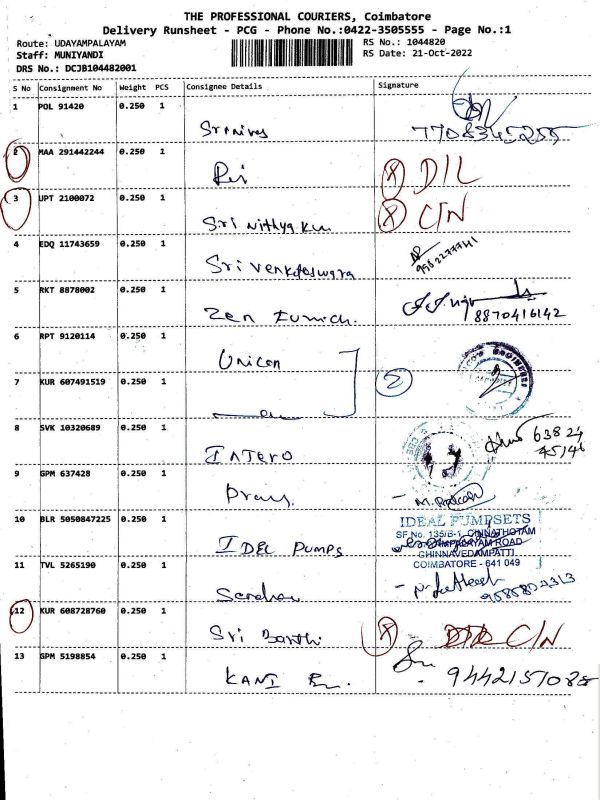 THE PROFESSIONAL COURIERS, Coimbatore
Delivery Runsheet - PCG - Phone No.:0422-3505555 - Page No.:1
Route: UDAYAMPALAYAM
RS No.: 1044820
Staff: MUNIYANDI
RS Date: 21-Oct-2022
DRS No.: DCJB104482001
S No Consignment No Weight PCS Consignee Details Signature
1 POL 91420 0.250 1
Srinivas 7708345255
2 MAA 291442244 0.250 1
D/L
3 UPT 2100072 0.250 1
Sri Nithya C/N
4 EDQ 11743659 0.250 1
Sri Venkateswara
5 RKT 8878002 0.250 1
Zen 8870416142
6 RPT 9120114 0.250 1
Unicon
7 KUR 607491519 0.250 1
2
8 SVK 10320689 0.250 1
Intero 63824
45146
9 GPM 637428 0.250 1
10 BLR 5050847225 0.250 1
IDEL PUMPS
IDEAL PUMPSETS
SF No. 135/B-1, CINNATHOTAM
ROAD
CHINNAVEDAMPATTI
COIMBATORE - 641 049
11 TVL 5265190 0.250 1
12 KUR 608728760 0.250 1
Sri C/N
13 GPM 5198854 0.250 1
KANI 9442157088